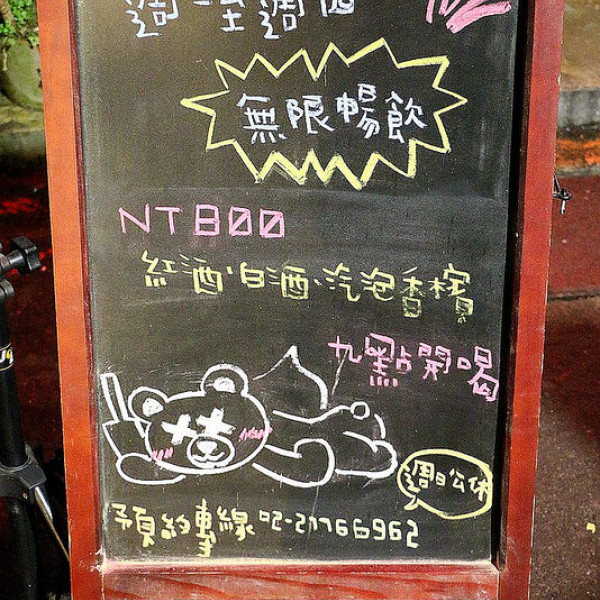 週一至週四
無限暢飲
NT800
紅酒、白酒、汽泡香檳
九點開喝
週日公休
預約專線 02-27766962